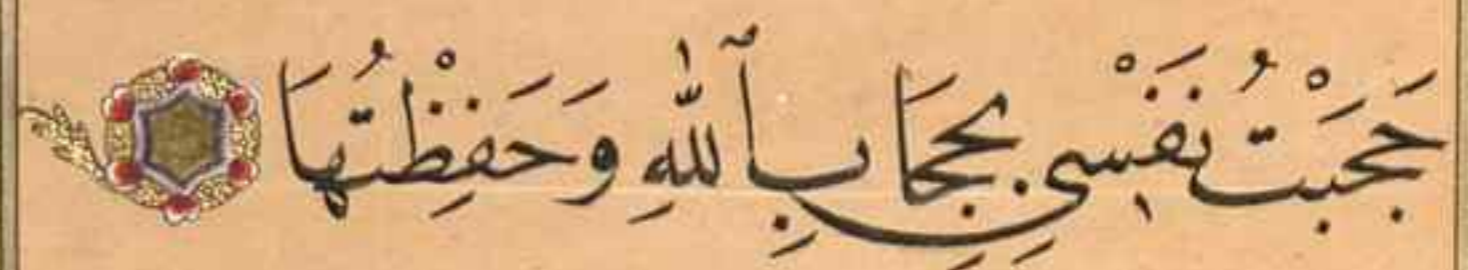 حَجَبْتُ نَفْسِي بِحِجَابِ ٱللهِ وَحَفِظْتُهَا